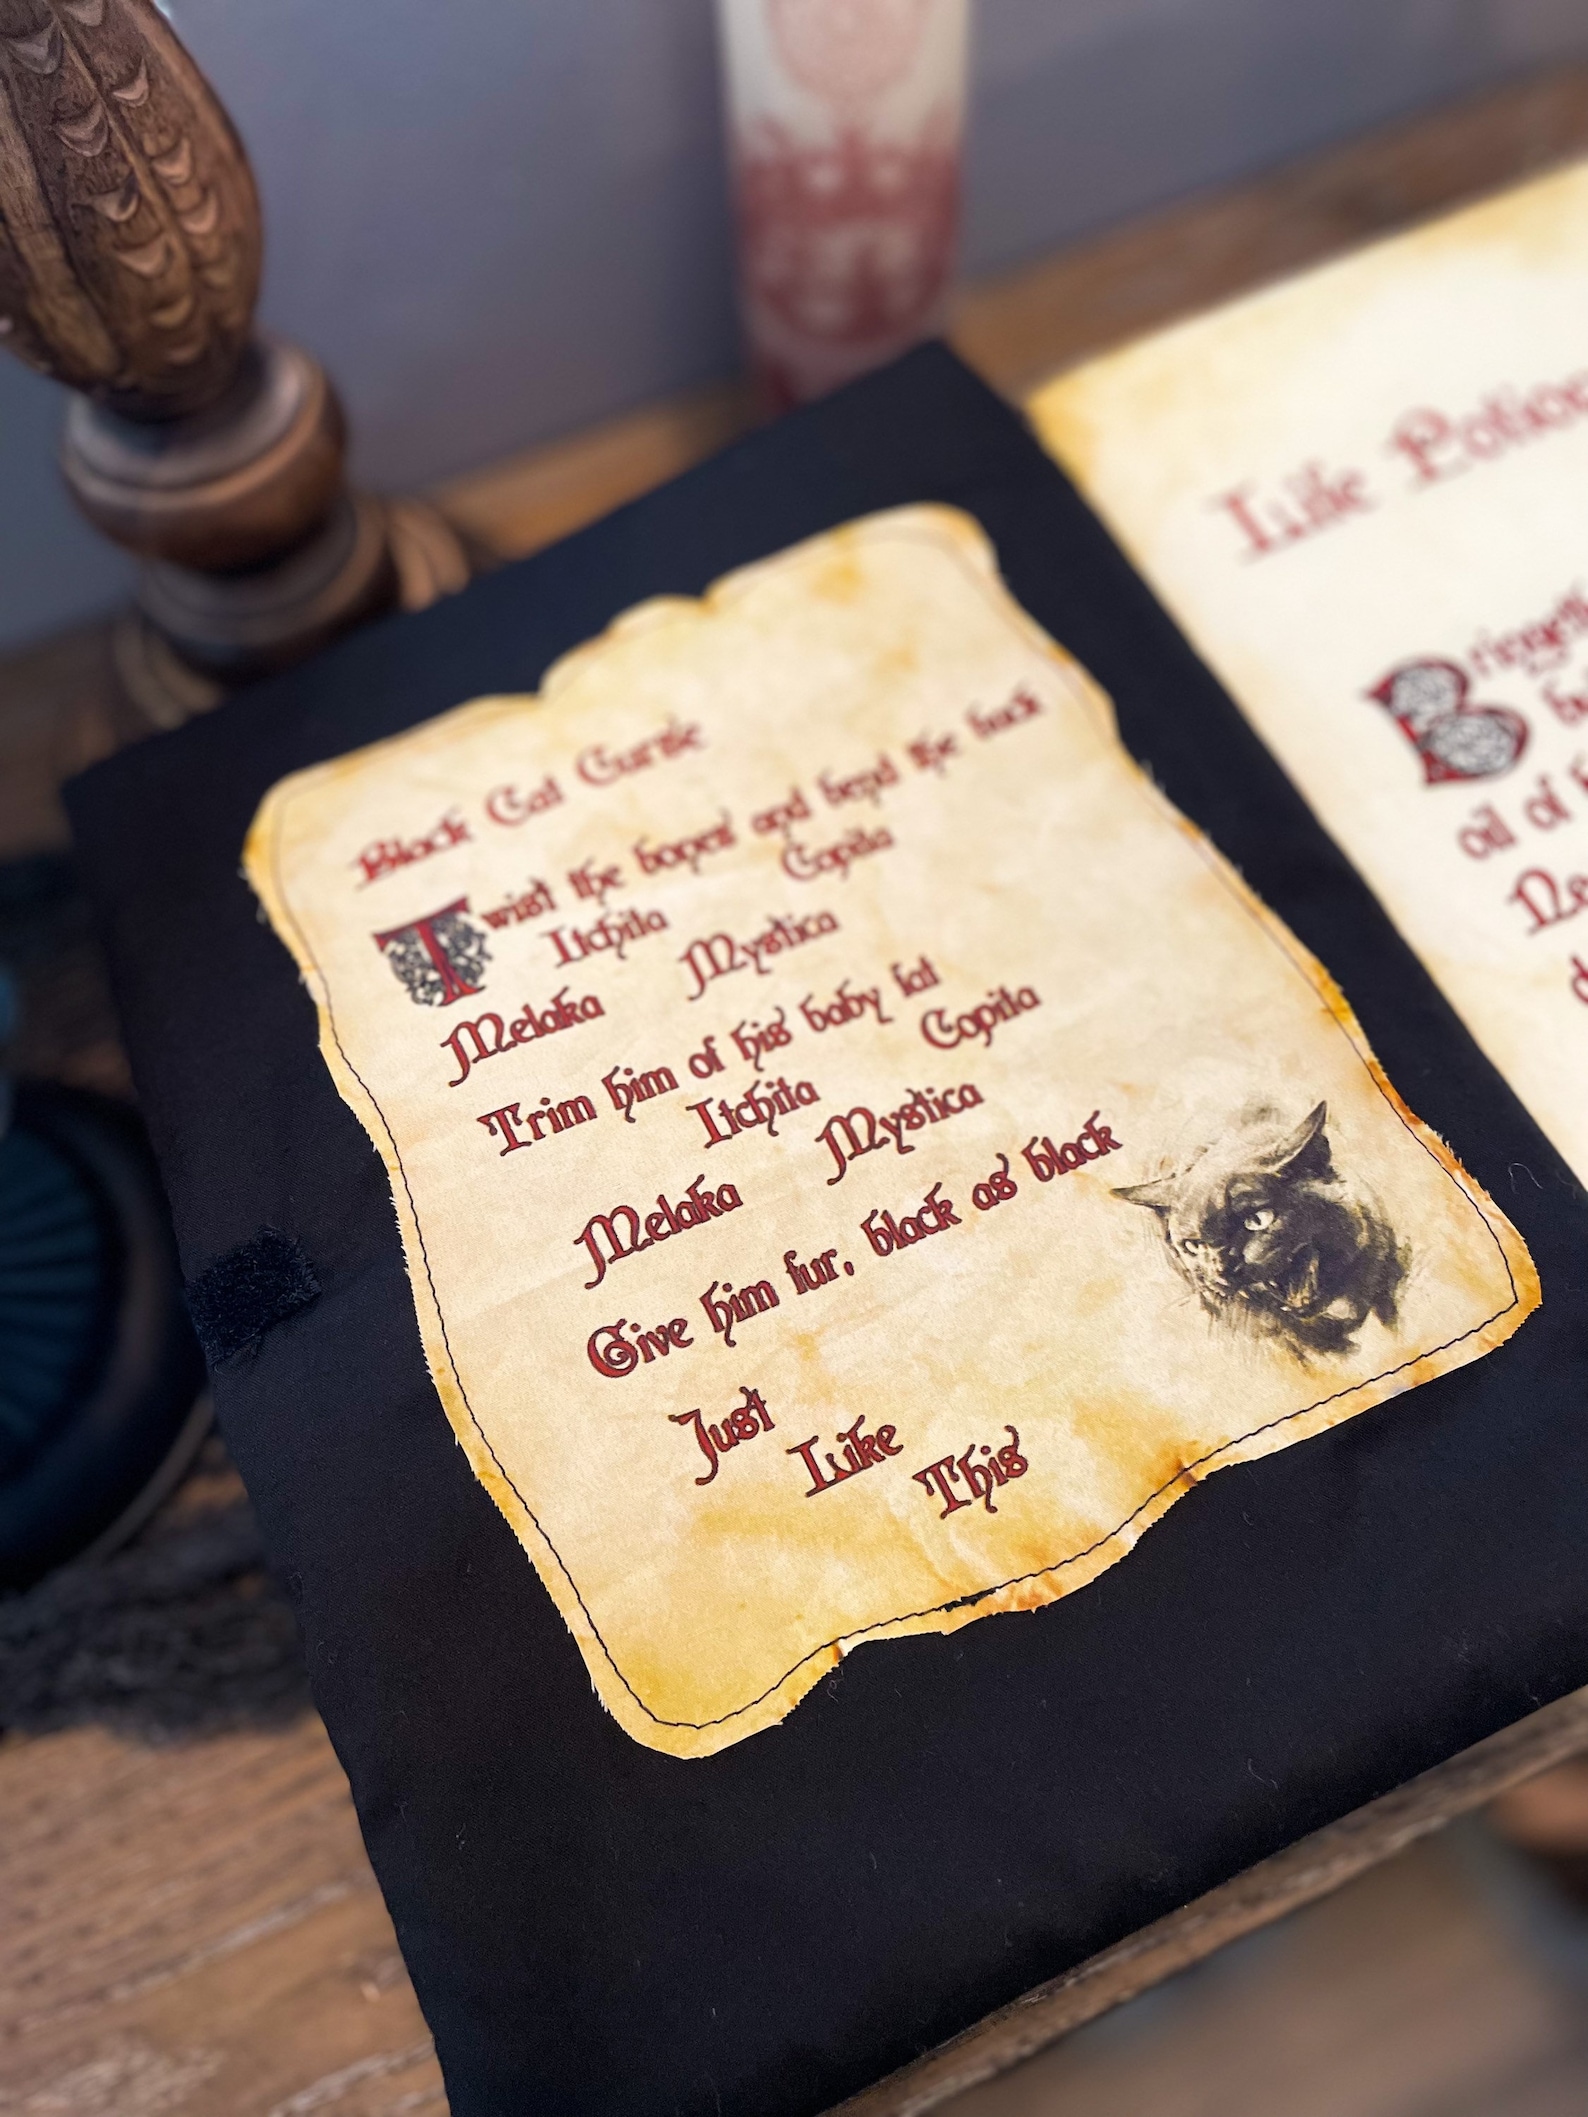 Black Cat Curse
Twist the bones and bend the back
Itchita Copita
Melaka Mystica
Trim him of his baby fat
Itchita Copita
Melaka Mystica
Give him fur, black as black
Just
Like
This
Life Potion
oil of